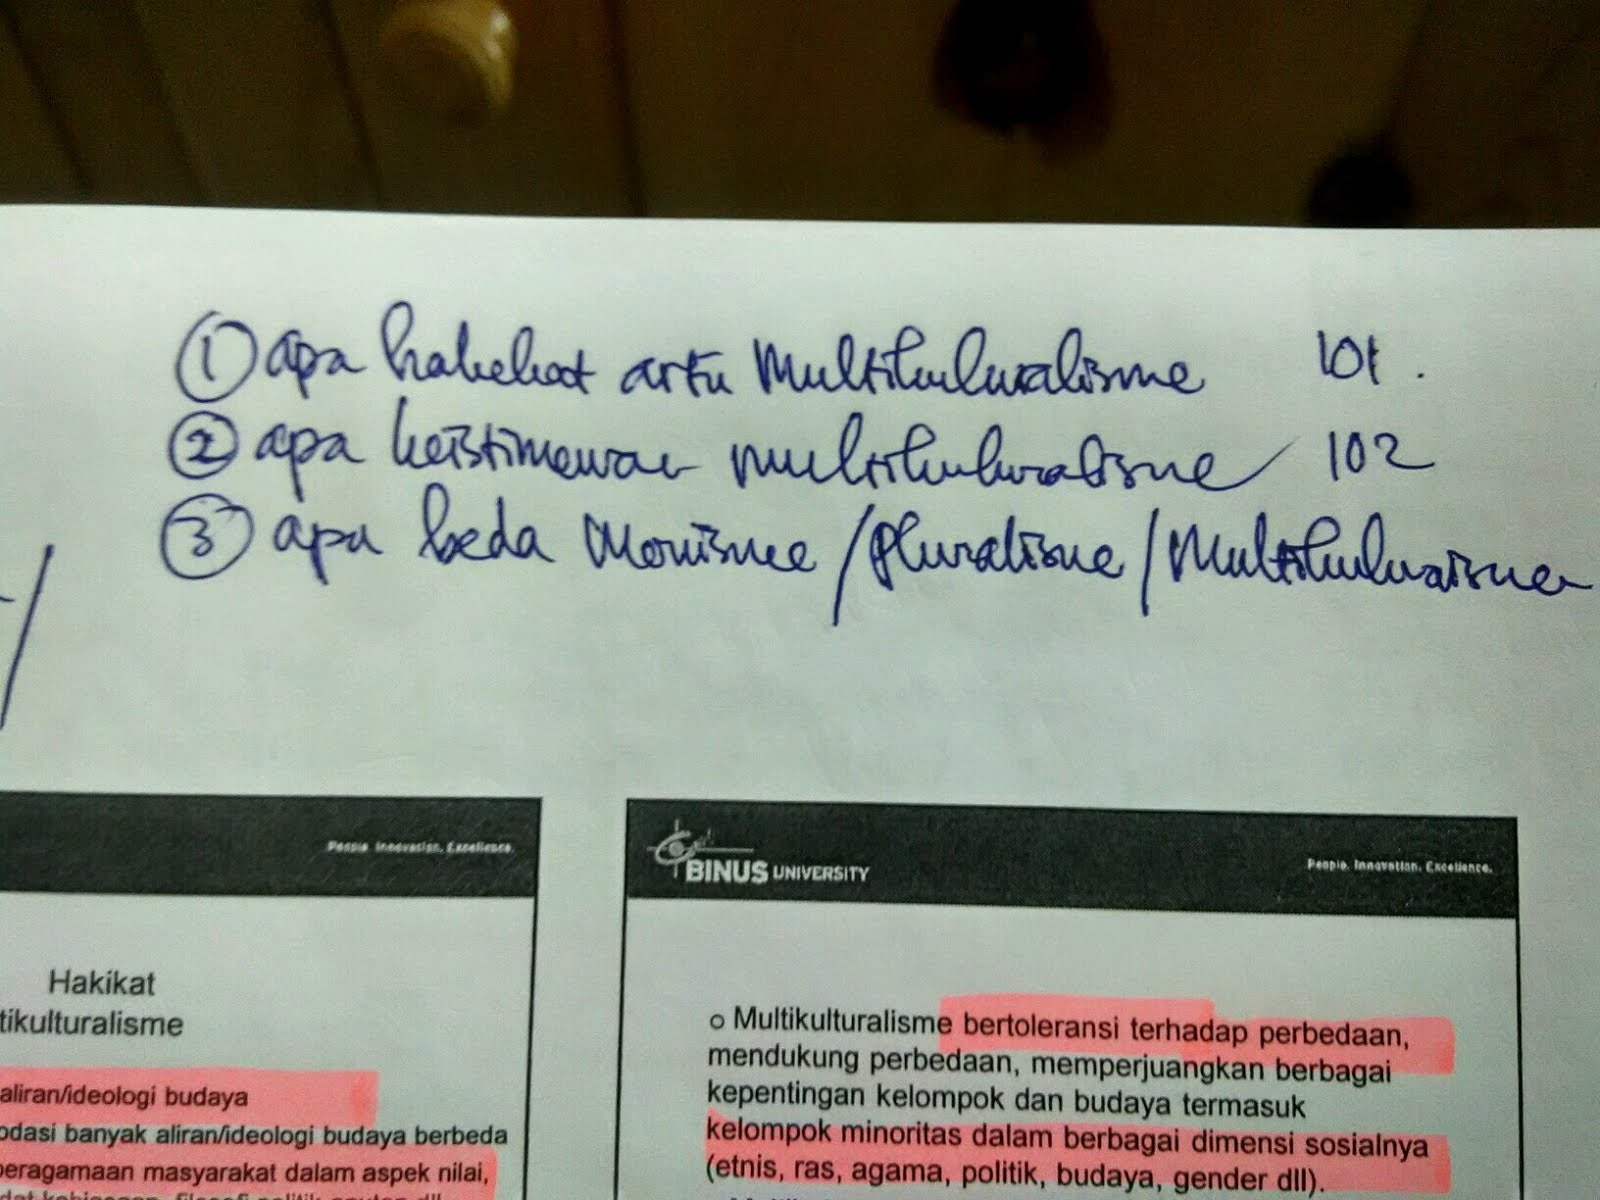 ① apa hakekat arti Multikulturalisme 101.
② apa keistimewaan multikulturalisme 102
③ apa beda Monisme / Pluralisme / Multikulturalisme
People. Innovation. Excellence.
Hakikat
tikulturalisme
aliran/ideologi budaya
odasi banyak aliran/ideologi budaya berbeda
eragamaan masyarakat dalam aspek nilai,
BINUS UNIVERSITY
People. Innovation. Excellence.
o Multikulturalisme bertoleransi terhadap perbedaan,
mendukung perbedaan, memperjuangkan berbagai
kepentingan kelompok dan budaya termasuk
kelompok minoritas dalam berbagai dimensi sosialnya
(etnis, ras, agama, politik, budaya, gender dll).